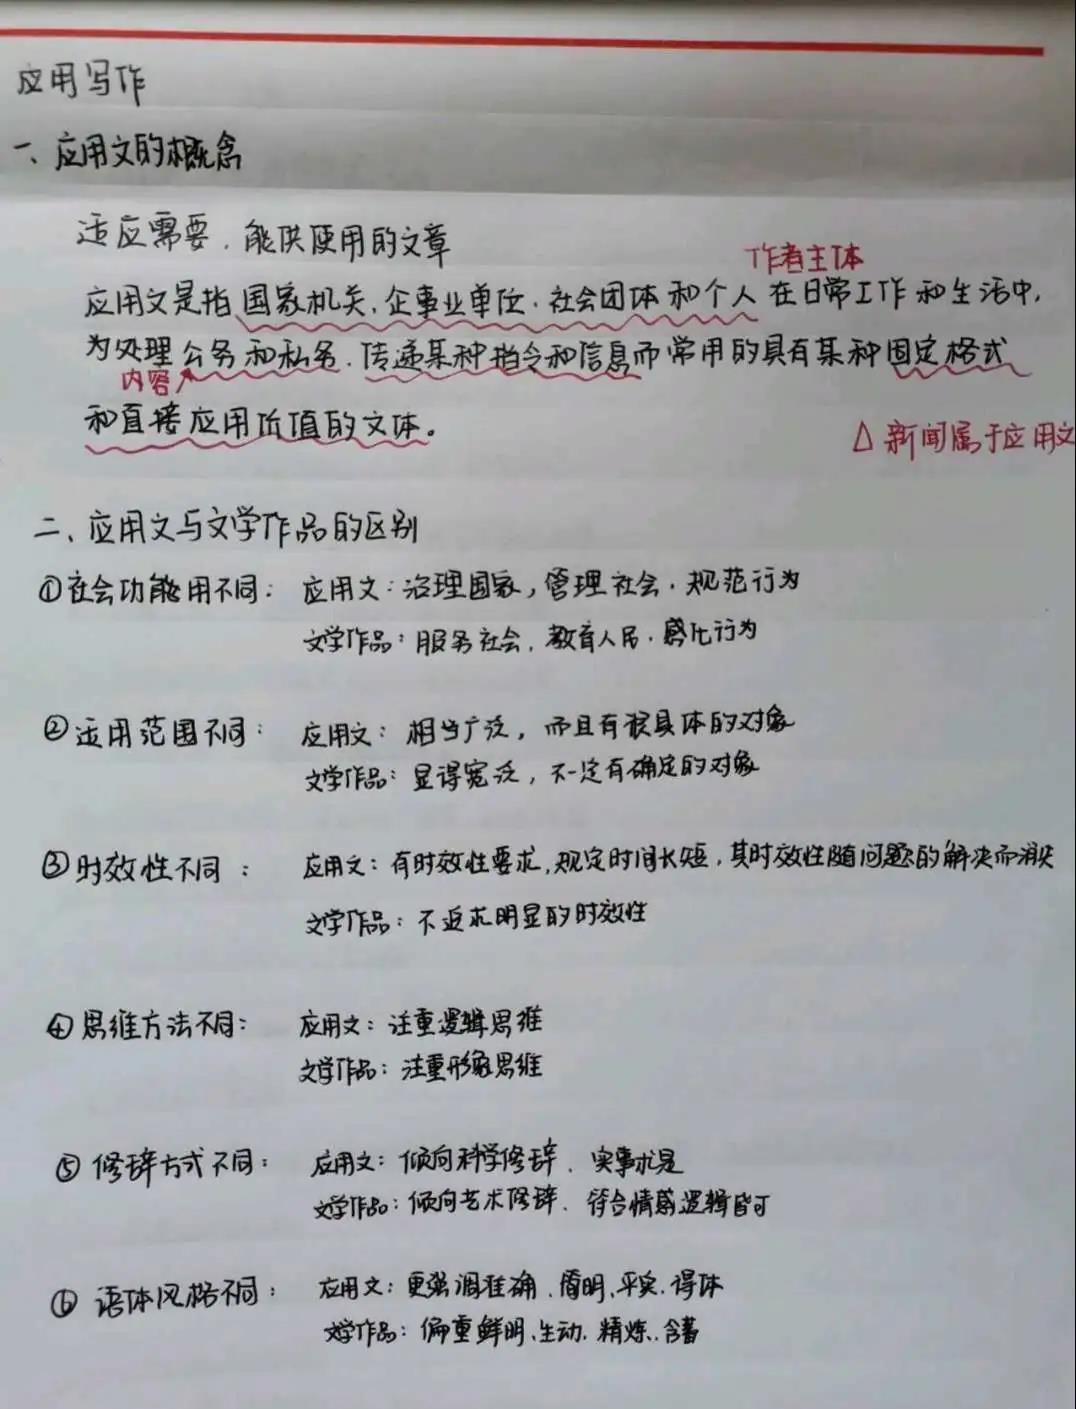 应用写作
一、应用文的概念
适应需要、能供使用的文章
作者主体
应用文是指国家机关、企事业单位、社会团体和个人在日常工作和生活中,
为处理公务和私务、传递某种指令和信息而常用的具有某种固定格式
内容
和直接应用价值的文体。
△ 新闻属于应用文
二、应用文与文学作品的区别
①社会功能用不同: 应用文:治理国家,管理社会、规范行为
文学作品:服务社会、教育人民、感化行为
②适用范围不同: 应用文:相当广泛,而且有很具体的对象
文学作品:显得宽泛,不一定有确定的对象
③时效性不同: 应用文:有时效性要求,规定时间长短,其时效性随问题的解决而消失
文学作品:不追求明显的时效性
④思维方法不同: 应用文:注重逻辑思维
文学作品:注重形象思维
⑤修辞方式不同: 应用文:倾向科学修辞、实事求是
文学作品:倾向艺术修辞、符合情感逻辑皆可
⑥语体风格不同: 应用文:更强调准确、简明、平实、得体
文学作品:偏重鲜明、生动、精炼、含蓄